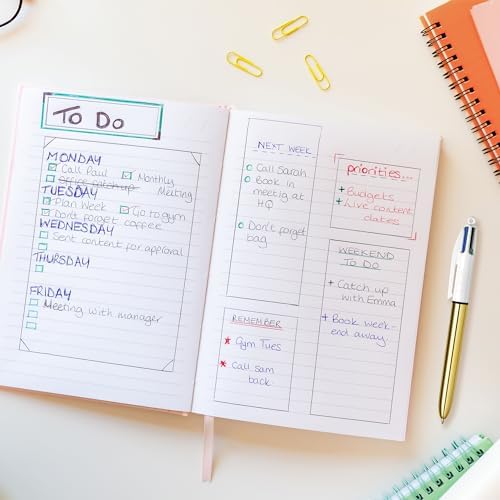 To Do
MONDAY
Call Paul Monthly
Office catch up Meeting
TUESDAY
Plan Week Go to gym
Don't forget coffee
WEDNESDAY
Sent content for approval
THURSDAY
FRIDAY
Meeting with manager
NEXT WEEK
Call Sarah
Book in
meetig at
HQ
Don't forget
bag
REMEMBER
* Gym Tues
* Call sam
back
priorities...
+ Budgets
+ Live content
dates
WEEKEND
TO DO
+ Catch up
with Emma
+ Book week-
end away.